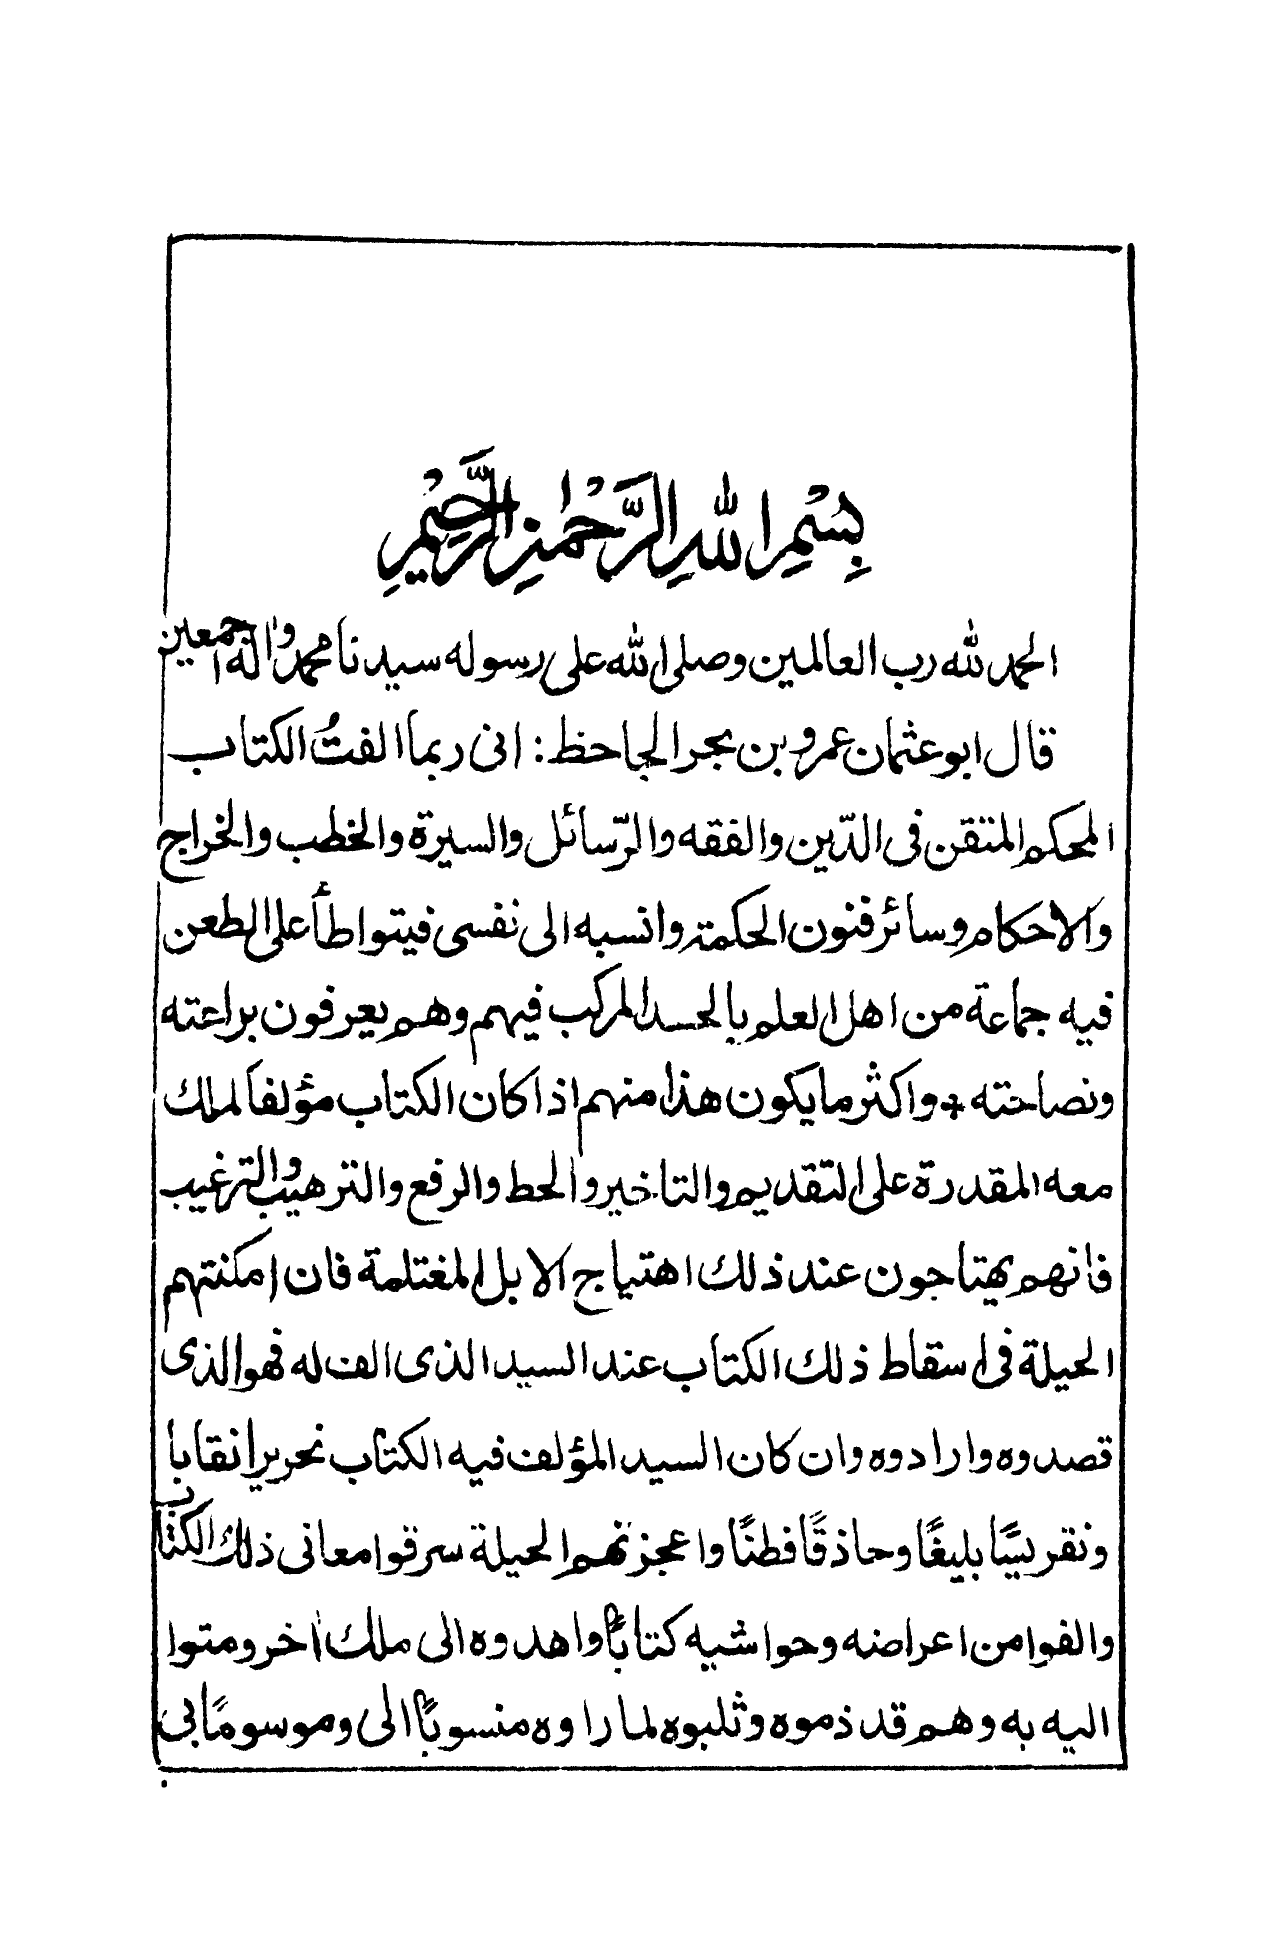 بِسْمِ اللهِ الرَّحْمٰنِ الرَّحِيْمِ
الحمد لله رب العالمين وصلى الله على رسوله سيدنا محمد واٰله اجمعين
قال ابو عثمان عمرو بن بجر الجاحظ : انى ربما الفتُ الكتاب
المحكم المتقن فى الدّين والفقه والرّسائل والسيرة والخطب والخراج
والاحكام وسائر فنون الحكمة وانسبه الى نفسى فيتواطأ على الطعن
فيه جماعة من اهل العلم بالحسد المركب فيهم وهم يعرفون براعته
ونصاحته + واكثر ما يكون هذا منهم اذا كان الكتاب مؤلفا لملك
معه المقدرة على التقديم والتاخير والحط والرفع والترهيب والترغيب
فانهم يهتاجون عند ذلك اهتياج الابل المغتلمة فان امكنتهم
الحيلة فى اسقاط ذلك الكتاب عند السيد الذى الف له فهو الذى
قصدوه وارادوه وان كان السيد المؤلف فيه الكتاب نحريرا نقابا
ونقريسًا بليغًا وحاذقًا فطنًا واعجزتهم الحيلة سرقوا معانى ذلك الكتاب
والفوا من اعراضه وحواشيه كتابًا واهدوه الى ملك اٰخر ومتوا
اليه به وهم قد ذموه وثلبوه لما راوه منسوبًا الى وموسومًا بى